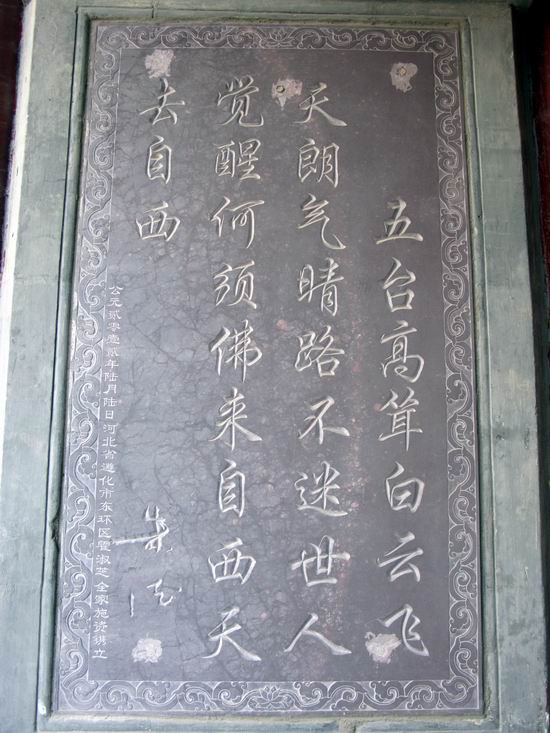 五台高耸白云飞
天朗气晴路不迷世人
觉醒何须佛来自西天
去自西
公元贰零壹贰年陆月陆日河北省遵化市东环区瞿淑芝全家施资镌立